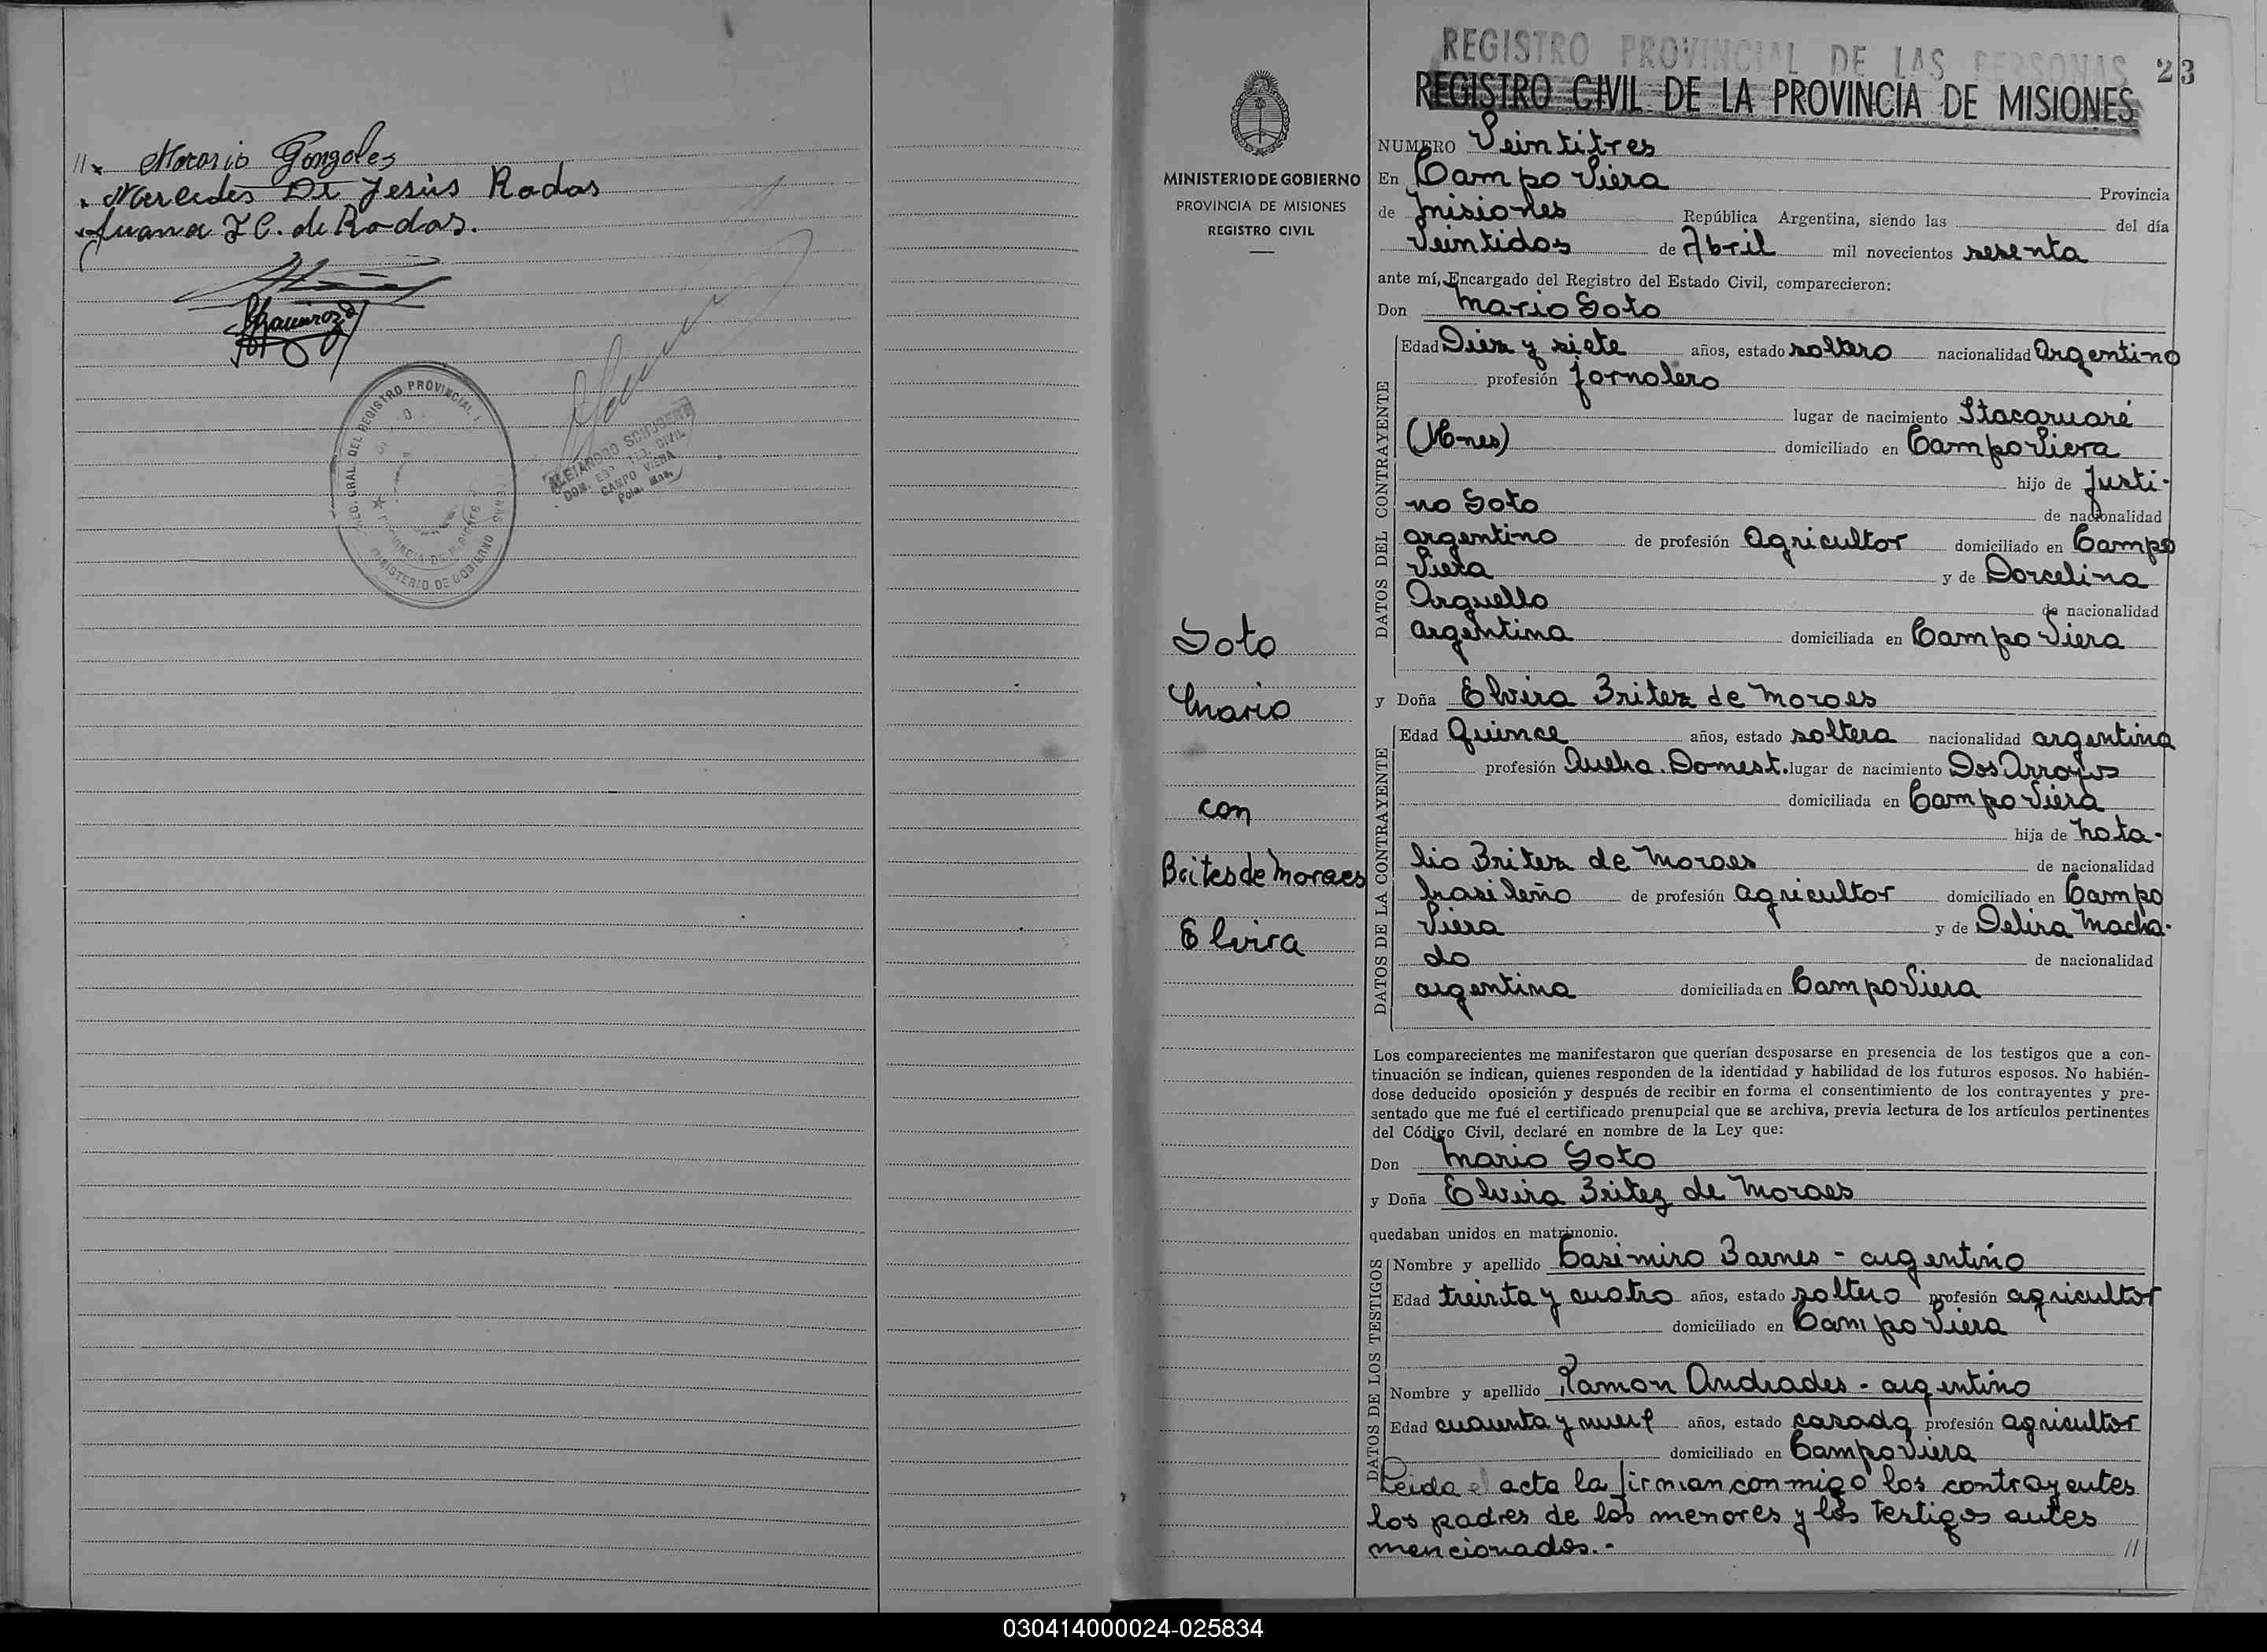 // x Horacio Gonzales
x Mercedes De Jesús Rodas
x Juana F C. de Rodas.
ALEJANDRO SCHUBERT
CAMPO VIERA
REGISTRO PROVINCIAL DE LAS PERSONAS
23
REGISTRO CIVIL DE LA PROVINCIA DE MISIONES
MINISTERIO DE GOBIERNO
PROVINCIA DE MISIONES
REGISTRO CIVIL
Soto
Mario
con
Britesde Moraes
Elvira
NUMERO Veintitres
En Campo Viera Provincia
de Misiones República Argentina, siendo las del día
Veintidos de Abril mil novecientos sesenta
ante mí, Encargado del Registro del Estado Civil, comparecieron:
Don Mario Soto
DATOS DEL CONTRAYENTE
Edad Diez y siete años, estado soltero nacionalidad Argentino
profesión Jornalero
lugar de nacimiento Itacaruaré
(Mnes) domiciliado en Campo Viera
hijo de Justi-
no Soto de nacionalidad
argentino de profesión Agricultor domiciliado en Campo
Viera y de Dorcelina
Arguello de nacionalidad
argentina domiciliada en Campo Viera
y Doña Elvira Britez de Moraes
DATOS DE LA CONTRAYENTE
Edad Quince años, estado soltera nacionalidad argentina
profesión Queha. Domest. lugar de nacimiento Dos Arroyos
domiciliada en Campo Viera
hija de Nata-
lio Britez de Moraes de nacionalidad
brasileño de profesión agricultor domiciliado en Campo
Viera y de Delira Macha-
do de nacionalidad
argentina domiciliada en Campo Viera
Los comparecientes me manifestaron que querían desposarse en presencia de los testigos que a con-
tinuación se indican, quienes responden de la identidad y habilidad de los futuros esposos. No habién-
dose deducido oposición y después de recibir en forma el consentimiento de los contrayentes y pre-
sentado que me fué el certificado prenupcial que se archiva, previa lectura de los artículos pertinentes
del Código Civil, declaré en nombre de la Ley que:
Don Mario Soto
y Doña Elvira Britez de Moraes
quedaban unidos en matrimonio.
DATOS DE LOS TESTIGOS
Nombre y apellido Casimiro Barnes - argentino
Edad treinta y cuatro años, estado soltero profesión agricultor
domiciliado en Campo Viera
Nombre y apellido Ramon Andrades - argentino
Edad cuarenta y nueve años, estado casado profesión agricultor
domiciliado en Campo Viera
Leida el acta la firman conmigo los contrayentes
los padres de los menores y los testigos antes
mencionados.- //
030414000024-025834